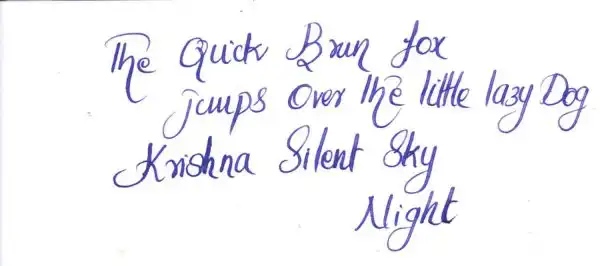 The Quick Brun fox
jumps Over The little lazy Dog
Krishna Silent Sky
Night